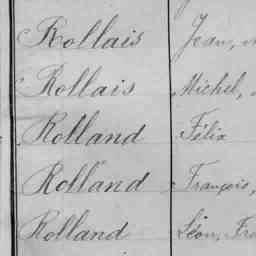 Rollais Jean,
Rollais Michel,
Rolland Félix
Rolland François,
Rolland Léon,